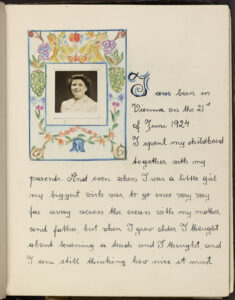 I was born in
Vienna on the 21st
of June 1924.
I spent my childhood
together with my
parents. And even when I was a little girl
my biggest wish was to go once very very
far away across the ocean with my mother
and father, but when I grew older I thought
about learning a trade and I thought, and
I am still thinking how nice it must